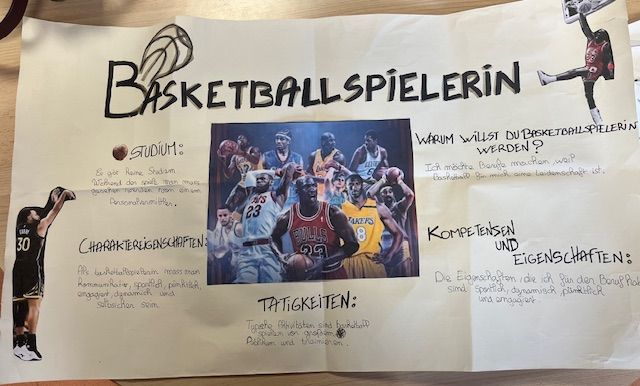 BASKETBALLSPIELERIN
STUDIUM:
Es gibt keine Studium.
Während der spielt man muss
gesehen werden von einem
Personalvermittler.
CHARAKTEREIGENSCHAFTEN:
Als basketballspielerin muss man
kommunikativ, sportlich, pünktlich,
engagiert, dynamisch und
selbsicher sein.
TATIGKEITEN:
Typische Aktivitäten sind basketball
spielen vor großem
Publikum und trainieren.
WARUM WILLST DU BASKETBALLSPIELERIN
WERDEN?
Ich möchte Berufe machen weil
Basketball für mich eine Leidenschaft ist.
KOMPETENSEN
UND
EIGENSCHAFTEN:
Die Eigenschaften, die ich für den Beruf habe
sind sportlich, dynamisch pünktlich
und engagiert.
30
CAVS
23
BULLS
23
LAKERS
8